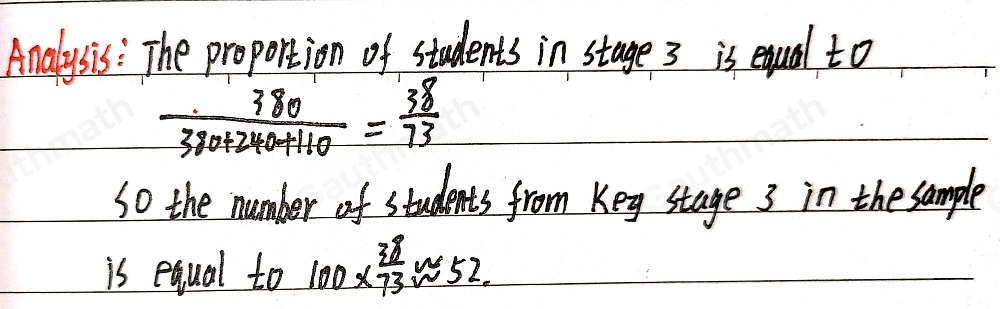 Analysis: The proportion of students in stage 3 is equal to
380/(380+240+110) = 38/73
So the number of students from Key stage 3 in the sample
is equal to 100 × 38/73 ≈ 52.